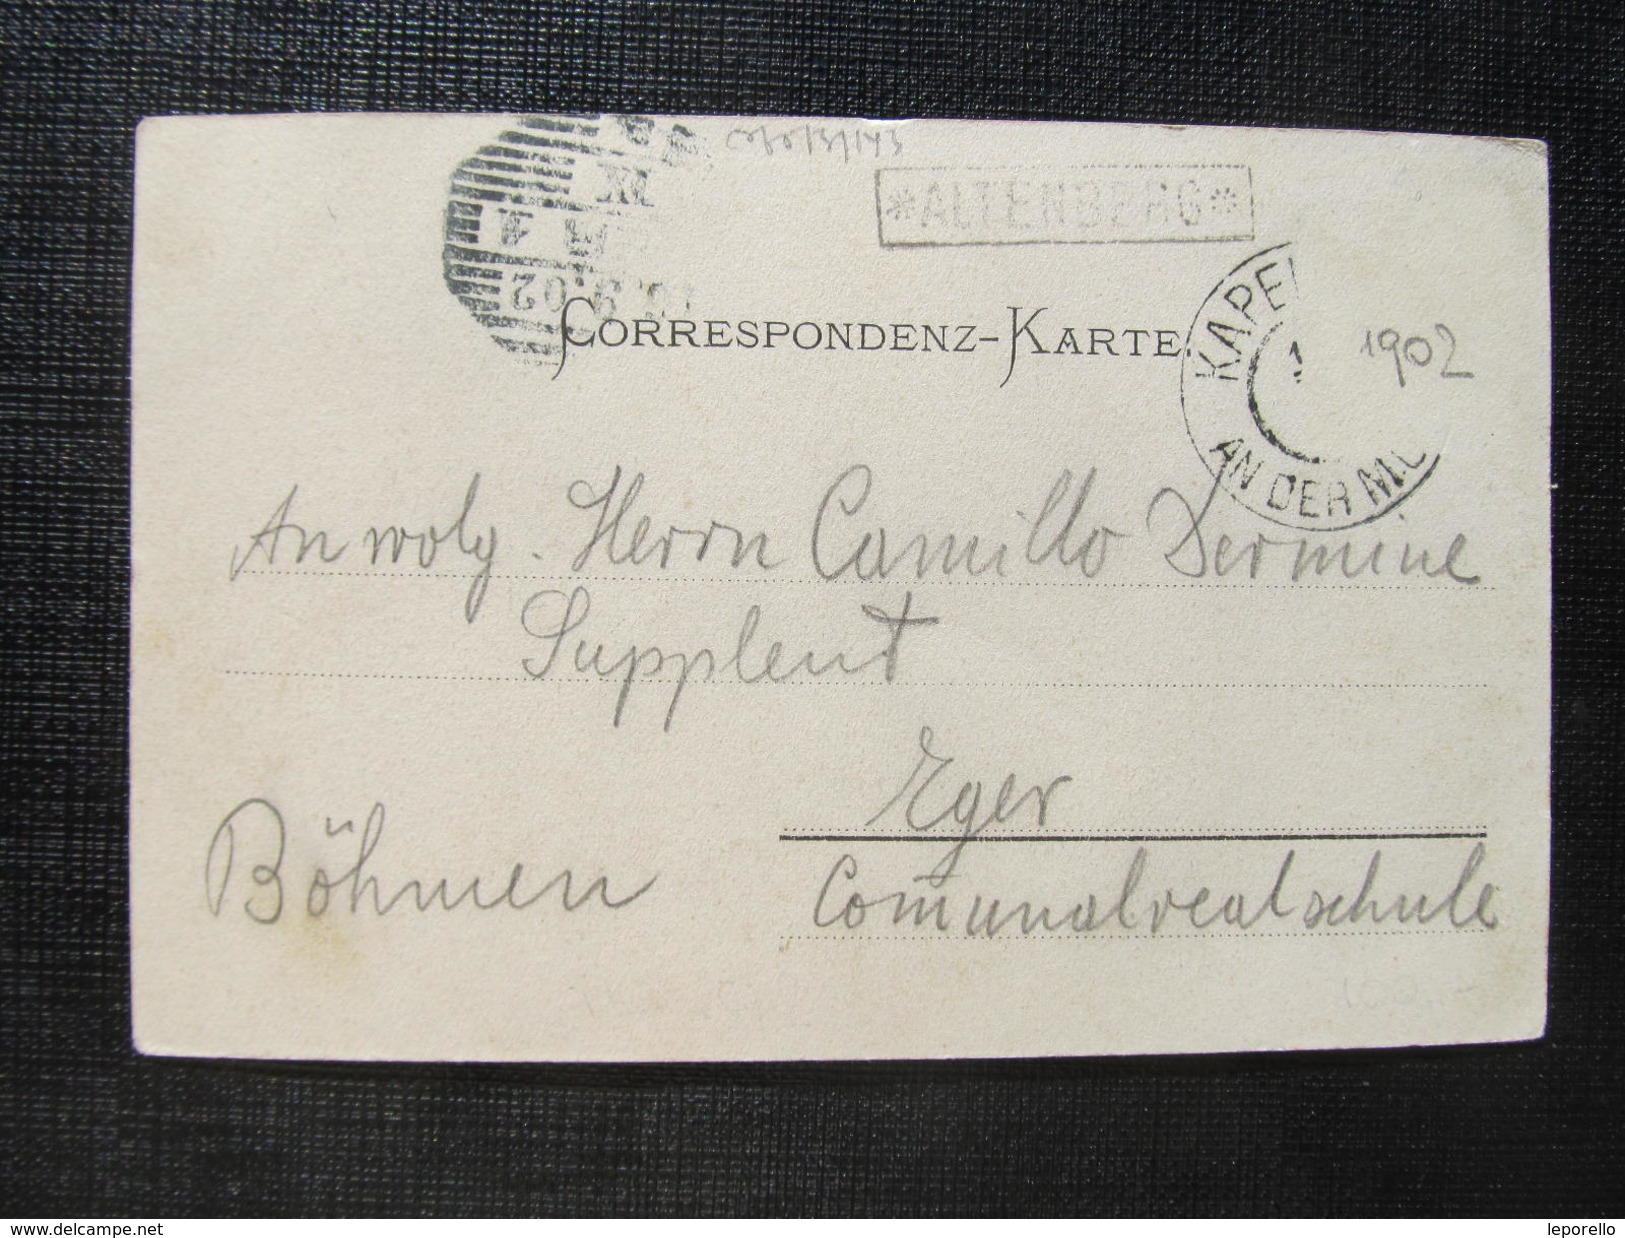 *ALTENBERG*
CORRESPONDENZ-KARTE
KAPE
AN DER MÜ
1902
An wolg. Herrn Camillo Dermine
Supplent
Eger
Böhmen
Comunalrealschule
www.delcampe.net
leporello